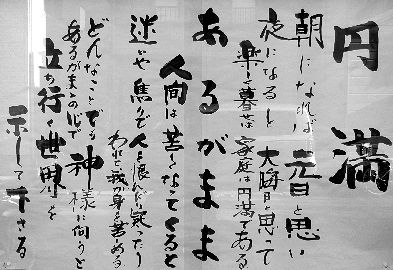 円満
朝になれば元日と思い
夜になると大晦日と思って
楽しく暮せば家庭は円満である
あるがまま
人間は苦しくなってくると
迷いや焦りで人を恨んだり呪ったり
われと我が身を苦める
どんなことでも神様に伺うと
あるがままの心で
立ち行く世界を
示して下さる